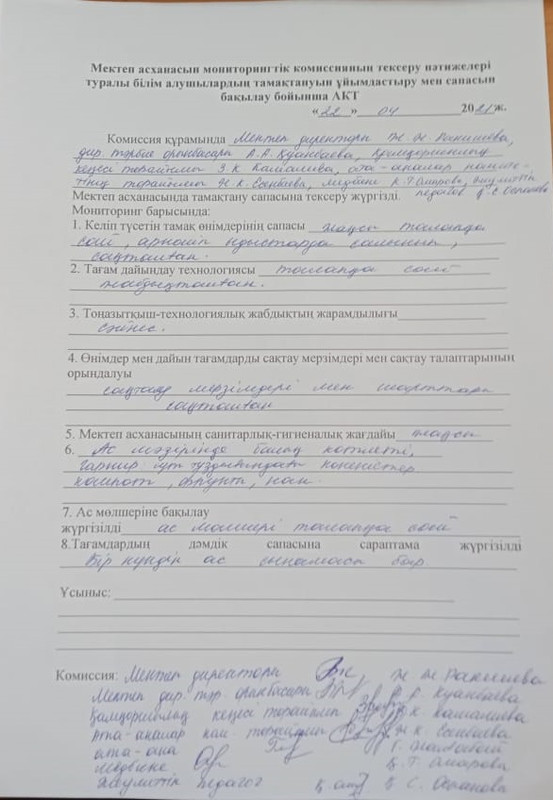 Мектеп асханасын мониторингтік комиссияның тексеру нәтижелері
туралы білім алушылардың тамақтануын ұйымдастыру мен сапасын
бақылау бойынша АКТ
«22» 04 2021 ж.
Комиссия құрамында Мектеп директоры Ж. Ж. Ракишева,
дир. тәрбие орынбасары А.Р. Қуанбаева, Қамқоршылық
кеңесі төрайымы З.К. Камашева, ата-аналар
төрайымы Ж.К. Есенбаева, медбике К.Т. Омарова,
Мектеп асханасында тамақтану сапасына тексеру жүргізді. педагог Қ.С. Оспанова
Мониторинг барысында:
1. Келіп түсетін тамақ өнімдерінің сапасы жақсы талапқа
сай, арнайы ыдыстарда салынып,
сақталған.
2. Тағам дайындау технологиясы талапқа сай
жабдықталған.
3. Тоңазытқыш-технологиялық жабдықтың жарамдылығы
сәйкес.
4. Өнімдер мен дайын тағамдарды сақтау мерзімдері мен сақтау талаптарының
орындалуы
сақтау мерзімдері мен шарттары
сақталған
5. Мектеп асханасының санитарлық-гигиеналық жағдайы жақсы
6. Ас мәзірінде балық котлеті,
гарнир: көкөністер
компот, фрукт, нан.
7. Ас мөлшеріне бақылау
жүргізілді ас мөлшері талапқа сай
8.Тағамдардың дәмдік сапасына сараптама жүргізілді
Бір күндік ас сынамасы бар
Ұсыныс:
Комиссия: Мектеп директоры Ж. Ж. Ракишева
Мектеп дир. тәр. орынбасары А. Р. Қуанбаева
Қамқоршылық кеңесі төрайымы З. К. Камашева
Ата-аналар ком төрайымы Ж. К. Есенбаева
ата-ана
Медбике К. Т. Омарова
Әлеуметтік педагог Қ. С. Оспанова